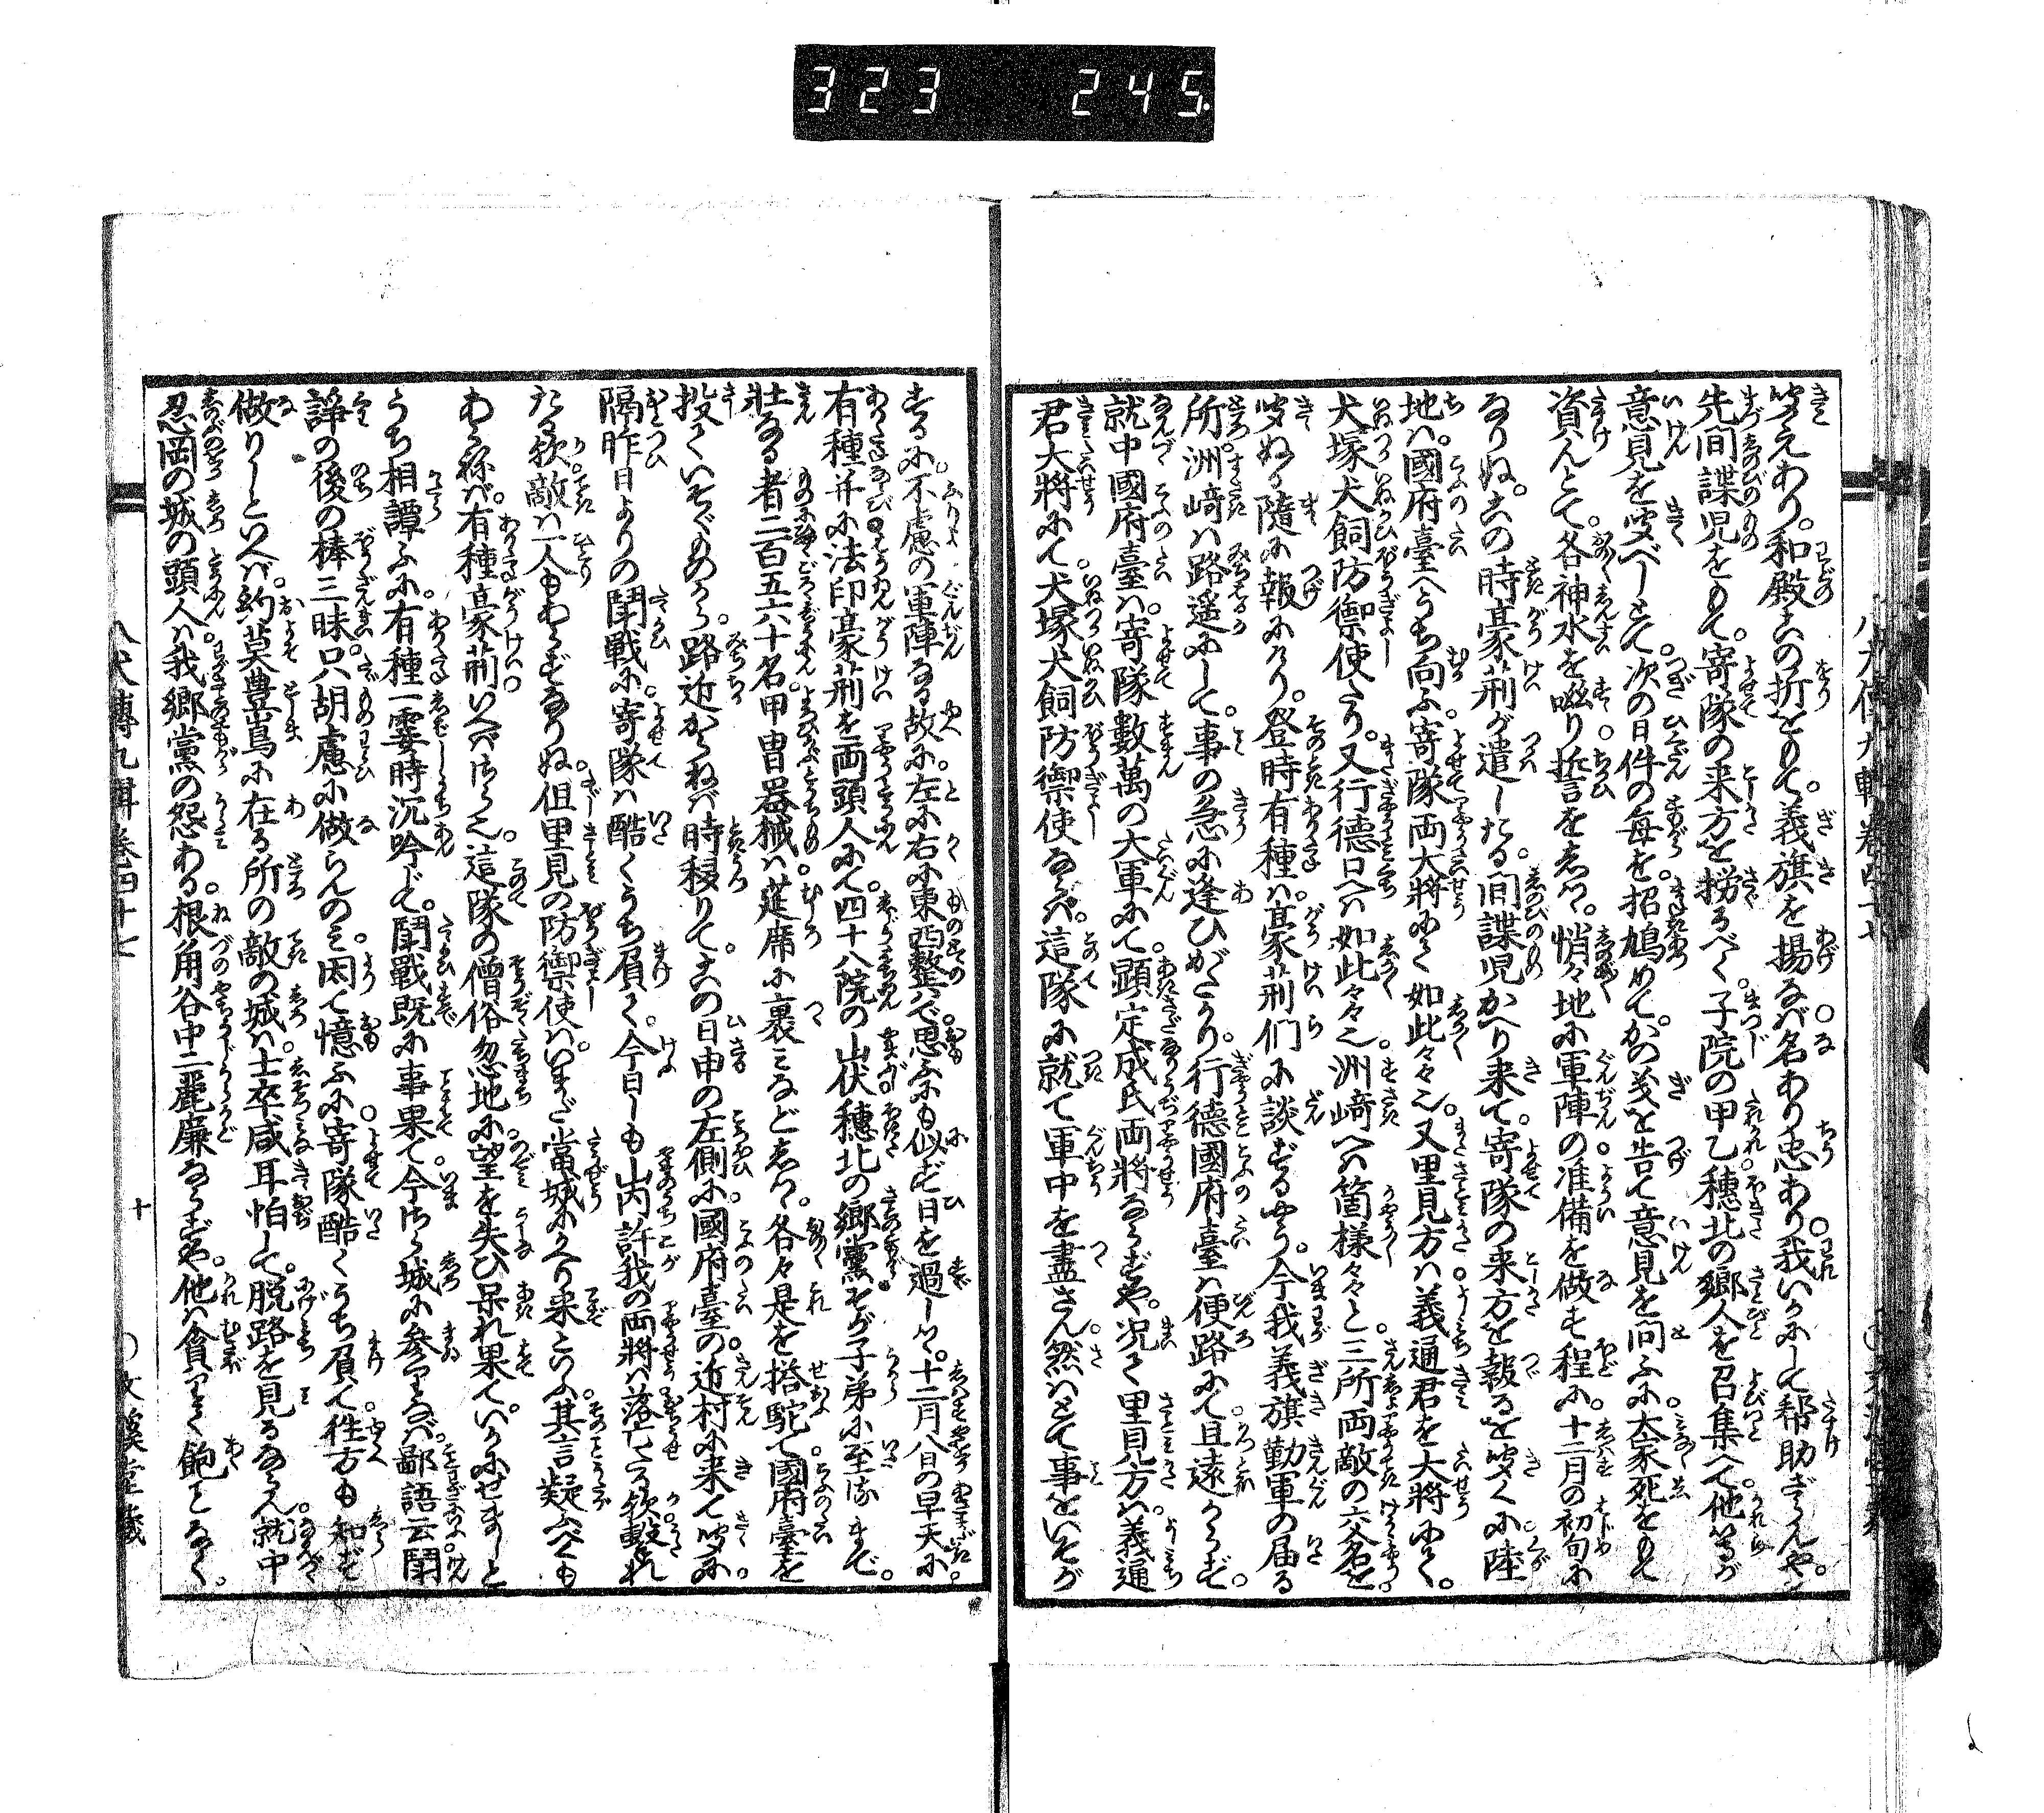 323 245.
八犬傳九輯卷四十七
聞えあり。和殿この折をもて。義旗を揚なば名あり忠あり。我いかにして帮助ざらんや。
先間諜児をもて。寄隊の来方を撈るべく。子院の甲乙穂北の郷人を召集へて。他等が
意見を聞べしとて。次の日件の毎を。招鳩めて。かの義を告て意見を問ふに。大家死をもて
資んとて。各神水を啜り誓言をしつ。悄々地に軍陣の准備を做す程に。十二月の初旬に
なりぬ。この時豪荊が遣したる。間諜児かへり来て。寄隊の来方を報るを聞くに陸
地は。國府臺へうち向ふ。寄隊両大將にて如此々々也。又里見方は義通君を大將にて。
犬塚犬飼防禦使たり。又行德口へは如此々々也。洲﨑へは箇様々々と。三所両敵の六名を
聞ぬる隨に報にけり。登時有種は。豪荊们に談ずるやう。今我義旗勤軍の届る
所。洲﨑は路遥にして。事の急に逢ひがたかり。行德國府臺は便路にて且遠からず。
就中國府臺は。寄隊數萬の大軍にて。顕定成氏両將ならずや。况て里見方は。義通
君大將にて。犬塚犬飼防禦使ならば。這隊に就て軍中を盡さん。然はとて事をいそが
するに。不慮の軍陣なる故に。左に右に東西整はで。思ふにも似ず日を過しつ。十二月八日の早天に。
有種并に法印豪荊を両頭人にて。四十八院の山伏穂北の郷黨其が子弟に至るまで。
壮なる者二百五六十名。甲冑器械は莚席に裹みなどしつ。各々是を搭駝て國府臺を
投ていそぐものから。路近からねば時移りて。この日申の左側に。國府臺の近村に来て聞に。
隔昨日よりの鬪戰に。寄隊は酷くうち負て。今日しも山内許我の両將は落亡たる歟撃れ
たる歟敵は一人もあらずなりぬ。但里見の防禦使は。いまだ當城にかへり来ずといふ。其言疑ふべくも
あらねば。有種豪荊いへばさら也。這隊の僧俗忽地に望を失ひ呆れ果て。いかにせましと
うち相譚ふに。有種一霎時沉吟じて。鬪戰既に事果て今さら城に参らば。鄙語云鬪
諍の後の棒三昧。只胡慮に做らんのみ。因て憶ふに寄隊酷くうち負て往方も知ず
做りしといへば。約莫豊嶌に在る所の敵の城は。士卒咸耳怕して。脱路を見るならん。就中
忍岡の城の頭人は。我郷黨の怨ある。根角谷中二麗廉ならずや。他は貪て飽ことなく。
八犬傳九輯卷四十七　十　〇文溪堂藏